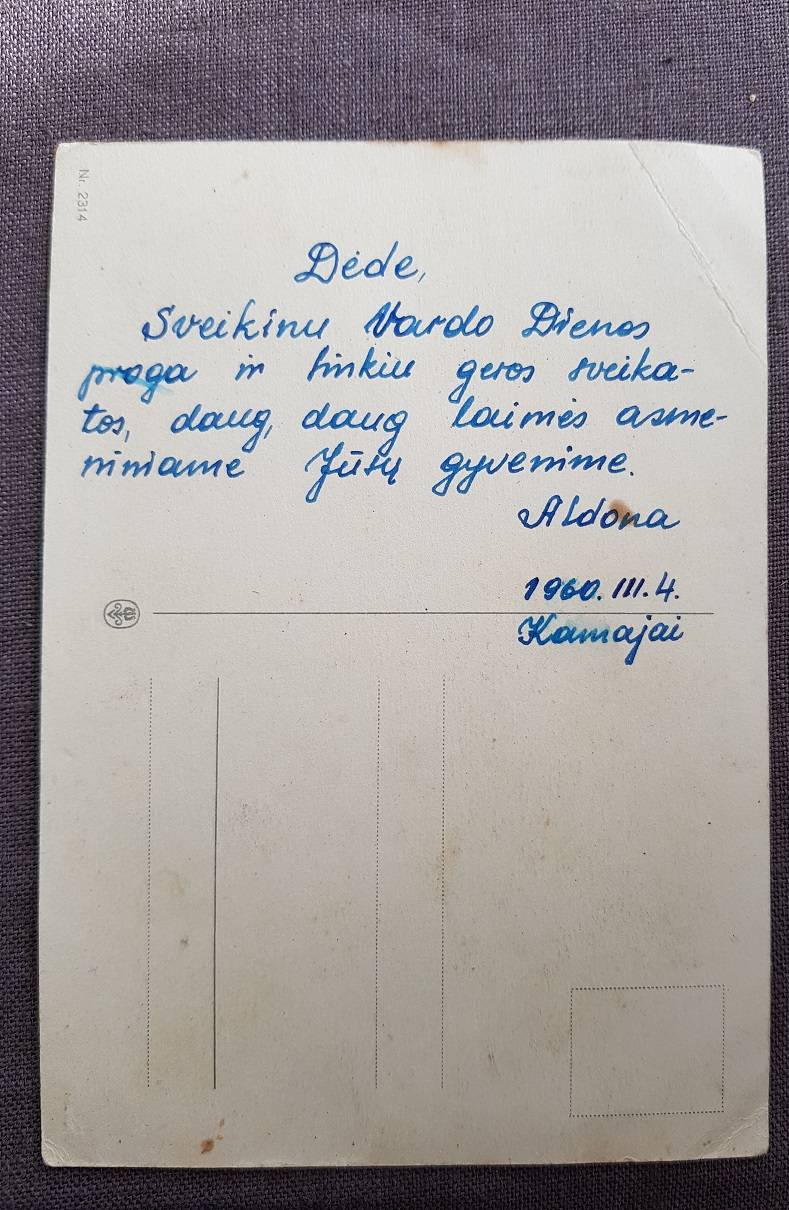 Nr. 2314
Dėde,
Sveikinu Vardo Dienos
proga ir linkiu geros sveika-
tos, daug, daug laimės asme-
niniame Jūsų gyvenime.
Aldona
1960. III. 4.
Kamajai